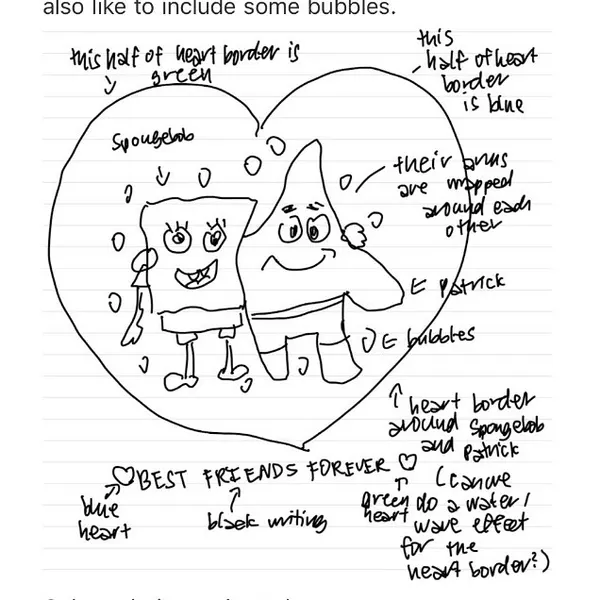 also like to include some bubbles.
this half of heart border is
green
this
half of heart
border
is blue
Spongebob
their arms
are wrapped
around each
other
← Patrick
← bubbles
heart border
around Spongebob
and Patrick
(can we
do a water/
wave effect
for the
heart border?)
♡BEST FRIENDS FOREVER ♡
blue
heart
black writing
green
heart